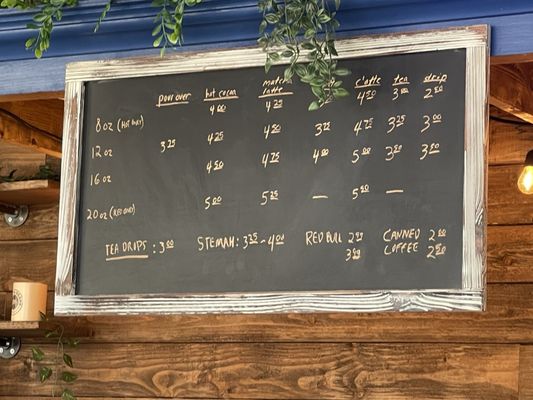 pour over hot cocoa matcha latte c'latte tea drip
8 oz (HOT ONLY) 4.00 4.25 4.50 3.00 2.50
12 oz 3.25 4.25 4.50 3.75 4.75 3.25 3.00
16 oz 4.50 4.75 4.00 5.00 3.50 3.50
20 oz (ICED ONLY) 5.00 5.25 — 5.50 —
TEA DRIPS: 3.00 STEMAH: 3.25-4.00 RED BULL 2.99 CANNED 2.00
3.50 COFFEE 2.50